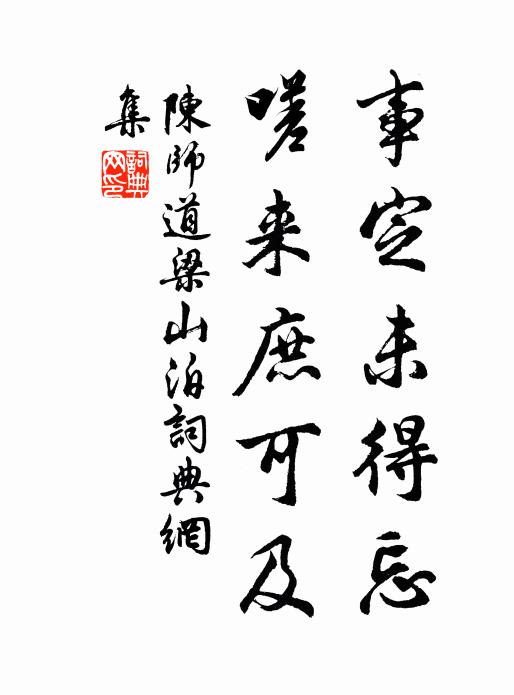 事定未得忘
嗟来庶可及
陳師道梁山泊詞典網
集
詞典网印